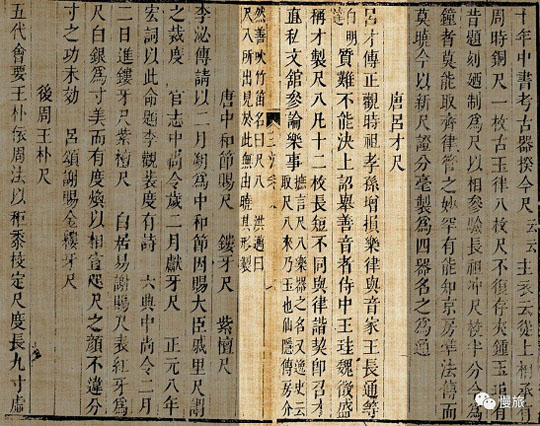 十年中書考古器揆今尺 云云 主衣云從上相承有
周時銅尺一枚古玉律八枚尺不復存夾鍾玉近有
昔題刻廼制為尺以相參驗長祖沖尺校半分今為
鐘者莫能取齊律管之妙罕有能知京房準法傳而
莫曉今以新尺證分毫製為四器名之為通
唐呂才尺
呂才傳正觀時祖孝孫增損樂律與音家王長通等
白明達
質難不能決上詔舉善音者侍中王珪魏徵盛
稱才製尺八凡十二枚長短不同與律諧契即召才
直私文館參論樂事
摭言尺八樂器之名又逸史云
取尺八來乃玉也仙隱傳房介
然善吹竹笛名曰尺八 洪邁曰
尺八所出見於此無出曉其形製
唐中和節賜尺 鏤牙尺 紫檀尺
李泌傳請以二月朔為中和節因賜大臣戚里尺謂
之裁度 官志中尚令歲二月獻牙尺 正元八年
宏詞以此命題李觀裴度有詩 六典中尚令二月
二日進鏤牙尺紫檀尺 白居易謝賜尺表紅牙為
尺白銀為寸美而有度煥以相宣咫尺之顏不違分
寸之功未効 呂頌謝賜金鏤牙尺
後周王朴尺
五代會要王朴依周法以秬黍校定尺度長九寸虛
慢旅